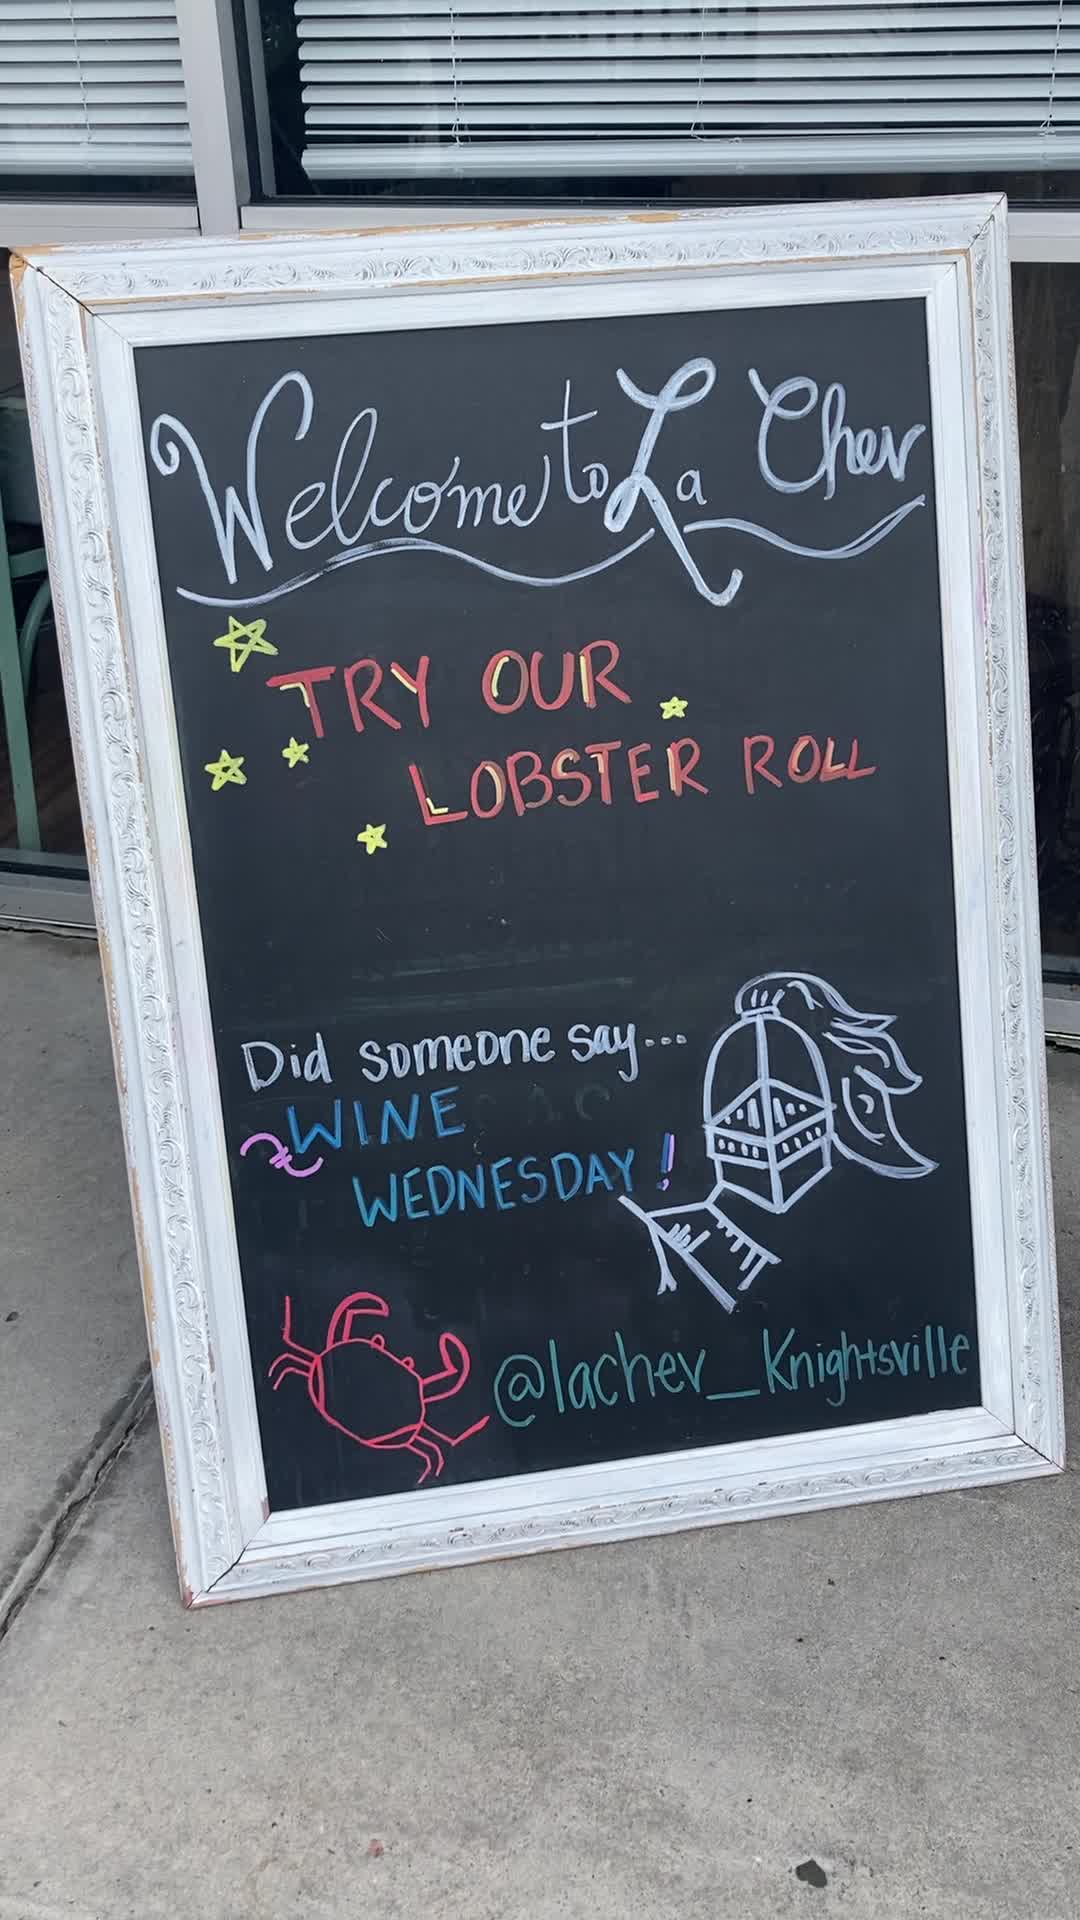 Welcome to La Chev
TRY OUR
LOBSTER ROLL
Did someone say...
WINE
WEDNESDAY!
@lachev_Knightsville